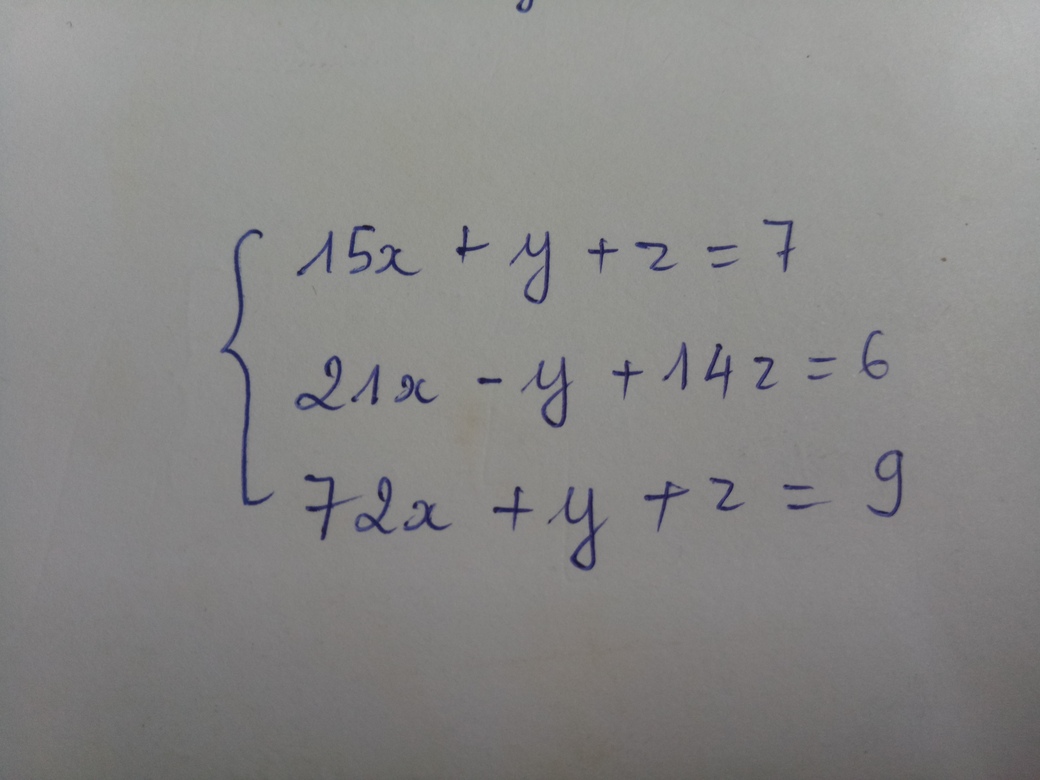 15x + y + z = 7
21x - y + 14z = 6
72x + y + z = 9